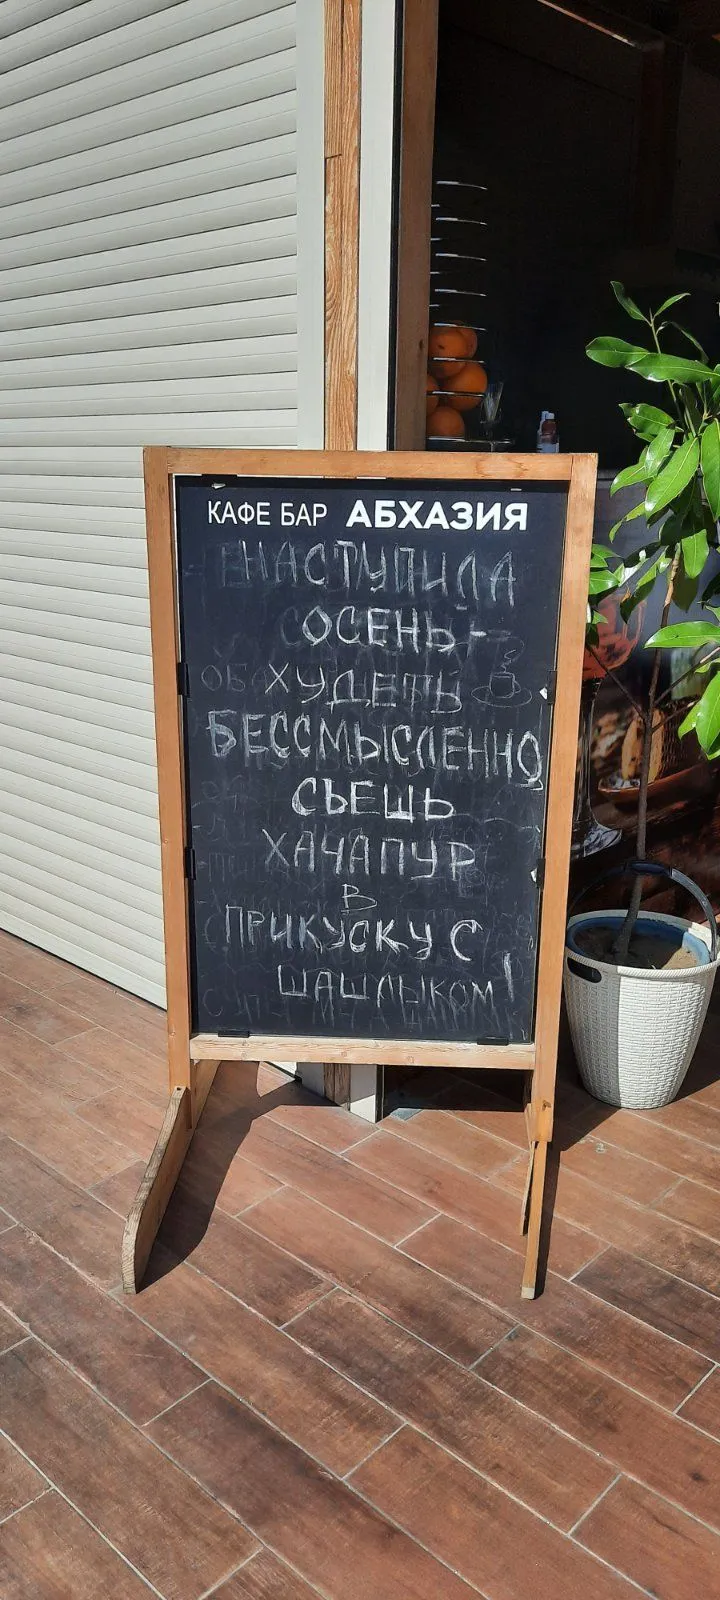 КАФЕ БАР АБХАЗИЯ
НАСТУПИЛА
ОСЕНЬ-
ХУДЕТЬ
БЕССМЫСЛЕННО,
СЬЕШЬ
ХАЧАПУР
В
ПРИКУСКУ С
ШАШЛЫКОМ!